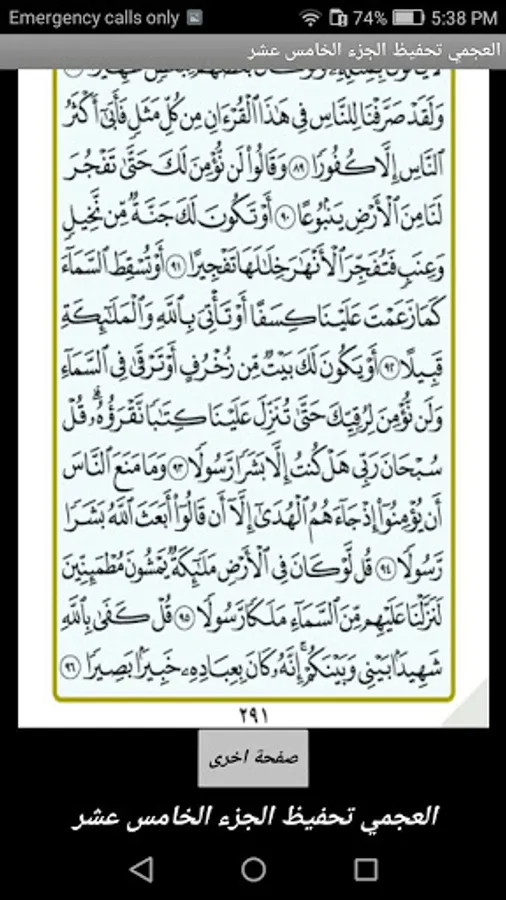 Emergency calls only
74% 5:38 PM
العجمي تحفيظ الجزء الخامس عشر
وَلَقَدْ صَرَّفْنَا لِلنَّاسِ فِي هَٰذَا الْقُرْءَانِ مِن كُلِّ مَثَلٍ فَأَبَىٰٓ أَكْثَرُ
النَّاسِ إِلَّا كُفُورًا ٨٩ وَقَالُوا۟ لَن نُّؤْمِنَ لَكَ حَتَّىٰ تَفْجُرَ
لَنَا مِنَ الْأَرْضِ يَنۢبُوعًا ٩٠ أَوْ تَكُونَ لَكَ جَنَّةٌ مِّن نَّخِيلٍ
وَعِنَبٍ فَتُفَجِّرَ الْأَنْهَٰرَ خِلَٰلَهَا تَفْجِيرًا ٩١ أَوْ تُسْقِطَ السَّمَآءَ
كَمَا زَعَمْتَ عَلَيْنَا كِسَفًا أَوْ تَأْتِيَ بِاللَّهِ وَالْمَلَٰٓئِكَةِ
قَبِيلًا ٩٢ أَوْ يَكُونَ لَكَ بَيْتٌ مِّن زُخْرُفٍ أَوْ تَرْقَىٰ فِي السَّمَآءِ
وَلَن نُّؤْمِنَ لِرُقِيِّكَ حَتَّىٰ تُنَزِّلَ عَلَيْنَا كِتَٰبًا نَّقْرَؤُهُۥ ۗ قُلْ
سُبْحَانَ رَبِّي هَلْ كُنتُ إِلَّا بَشَرًا رَّسُولًا ٩٣ وَمَا مَنَعَ النَّاسَ
أَن يُؤْمِنُوٓا۟ إِذْ جَآءَهُمُ الْهُدَىٰٓ إِلَّآ أَن قَالُوٓا۟ أَبَعَثَ اللَّهُ بَشَرًا
رَّسُولًا ٩٤ قُل لَّوْ كَانَ فِي الْأَرْضِ مَلَٰٓئِكَةٌ يَمْشُونَ مُطْمَئِنِّينَ
لَنَزَّلْنَا عَلَيْهِم مِّنَ السَّمَآءِ مَلَكًا رَّسُولًا ٩٥ قُلْ كَفَىٰ بِاللَّهِ
شَهِيدًۢا بَيْنِي وَبَيْنَكُمْ ۚ إِنَّهُۥ كَانَ بِعِبَادِهِۦ خَبِيرًۢا بَصِيرًا ٩٦
٢٩١
صفحة اخرى
العجمي تحفيظ الجزء الخامس عشر